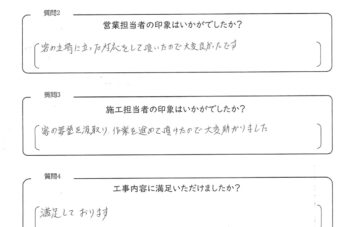 質問2
営業担当者の印象はいかがでしたか?
客の立場に立った対応をして頂いたので大変良かったです
質問3
施工担当者の印象はいかがでしたか?
客の要望を汲取り 作業を進めて頂けたので大変助かりました
質問4
工事内容に満足いただけましたか?
満足して おります